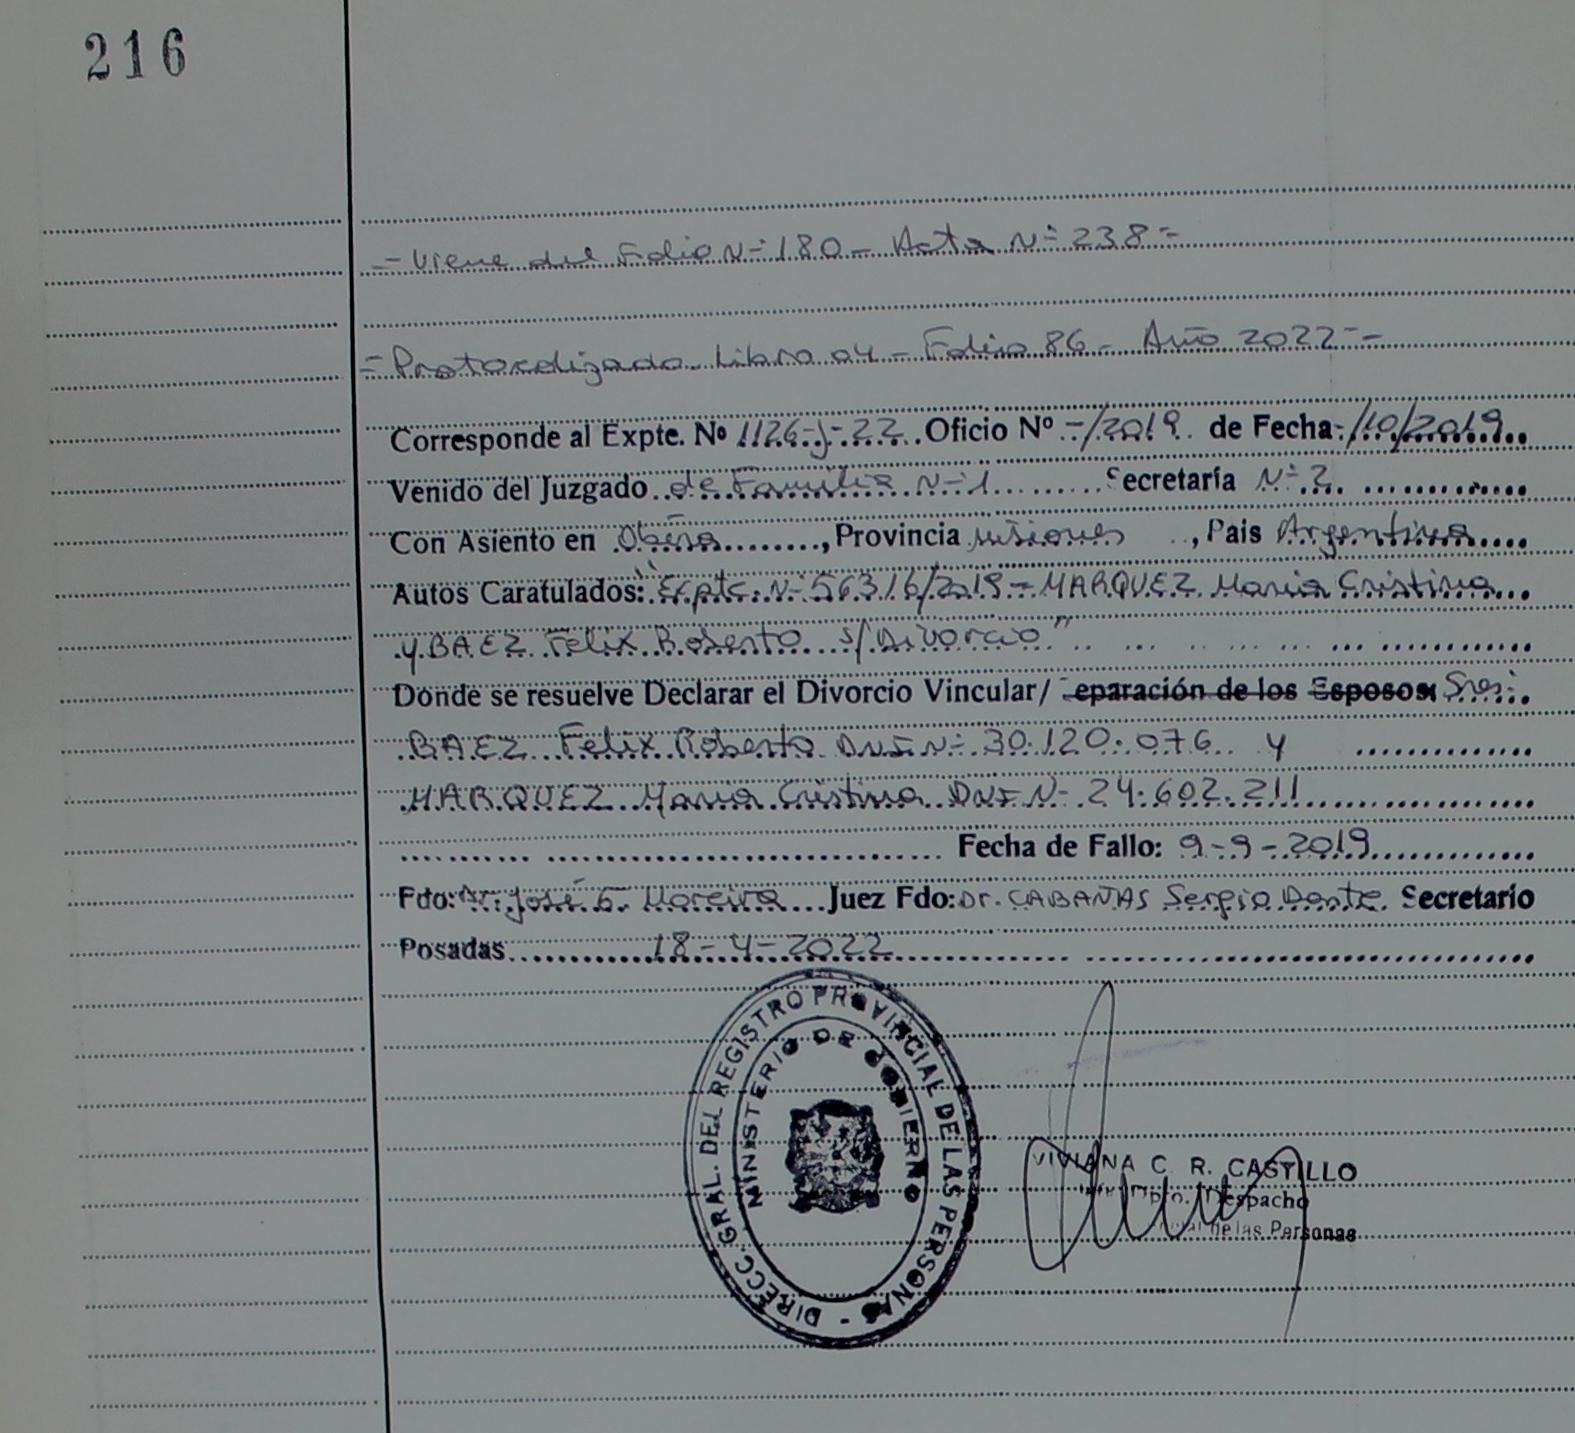 216
- Viene del Folio Nº 180 - Acta Nº 238 -
- Protocolizado Libro 04 - Folio 86 - Año 2022 -
Corresponde al Expte. Nº 1126-J-22 Oficio Nº -/2019 de Fecha -/10/2019
Venido del Juzgado de Familia Nº 1 Secretaría Nº 2
Con Asiento en Oberá, Provincia Misiones, Pais Argentina
Autos Caratulados: "Expte. Nº 56316/2019 - MARQUEZ Maria Cristina
y BAEZ Felix Roberto s/ Divorcio"
Donde se resuelve Declarar el Divorcio Vincular/ eparación de los Esposos: Sres:
BAEZ Felix Roberto DNI Nº 30.120.076 y
MARQUEZ Maria Cristina DNI Nº 24.602.211
Fecha de Fallo: 9-9-2019
Fdo: Dr. José G. Moreira Juez Fdo: Dr. CABAÑAS Sergio Dante Secretario
Posadas 18-4-2022
DIRECC. GRAL. DEL REGISTRO PROVINCIAL DE LAS PERSONAS -
MINISTERIO DE GOBIERNO
VIVIANA C. R. CASTILLO
Dpto. Despacho
de las Personas